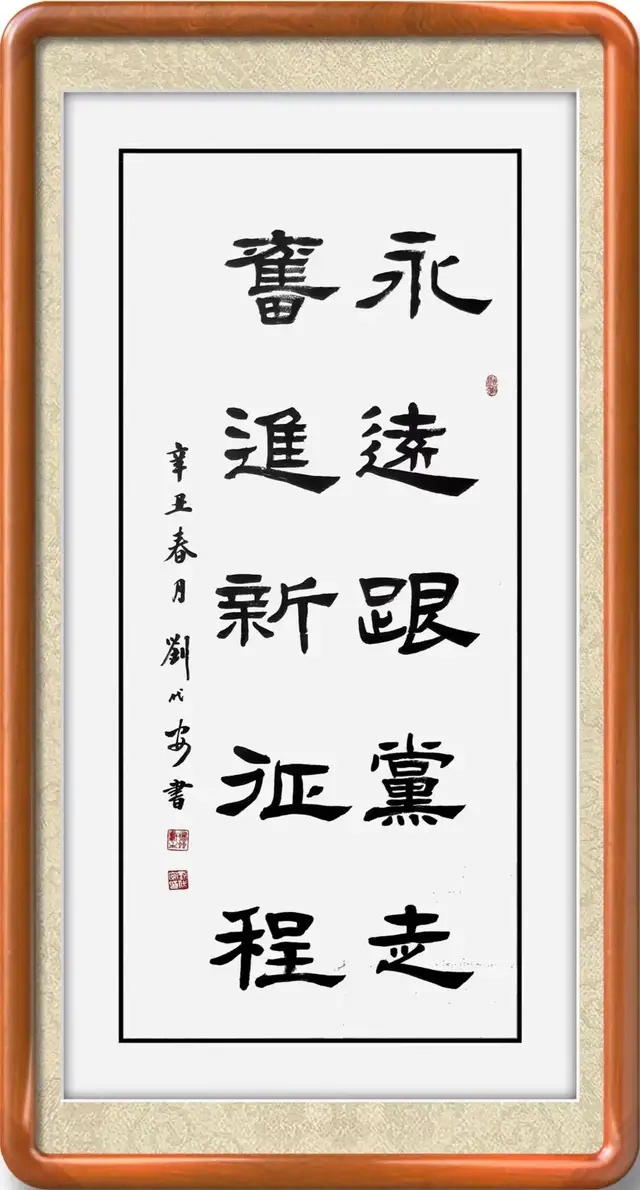 永遠跟黨走
奮進新征程
辛丑春月劉代安書